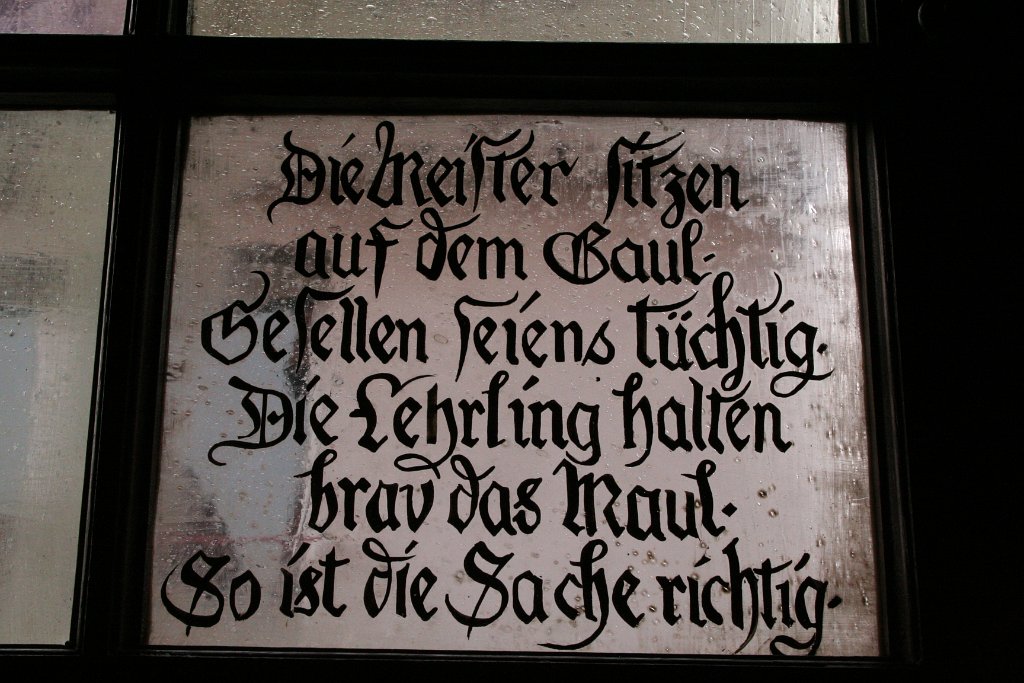 Die Meister sitzen
auf dem Gaul.
Gesellen seiens tüchtig.
Die Lehrling halten
brav das Maul.
So ist die Sache richtig.